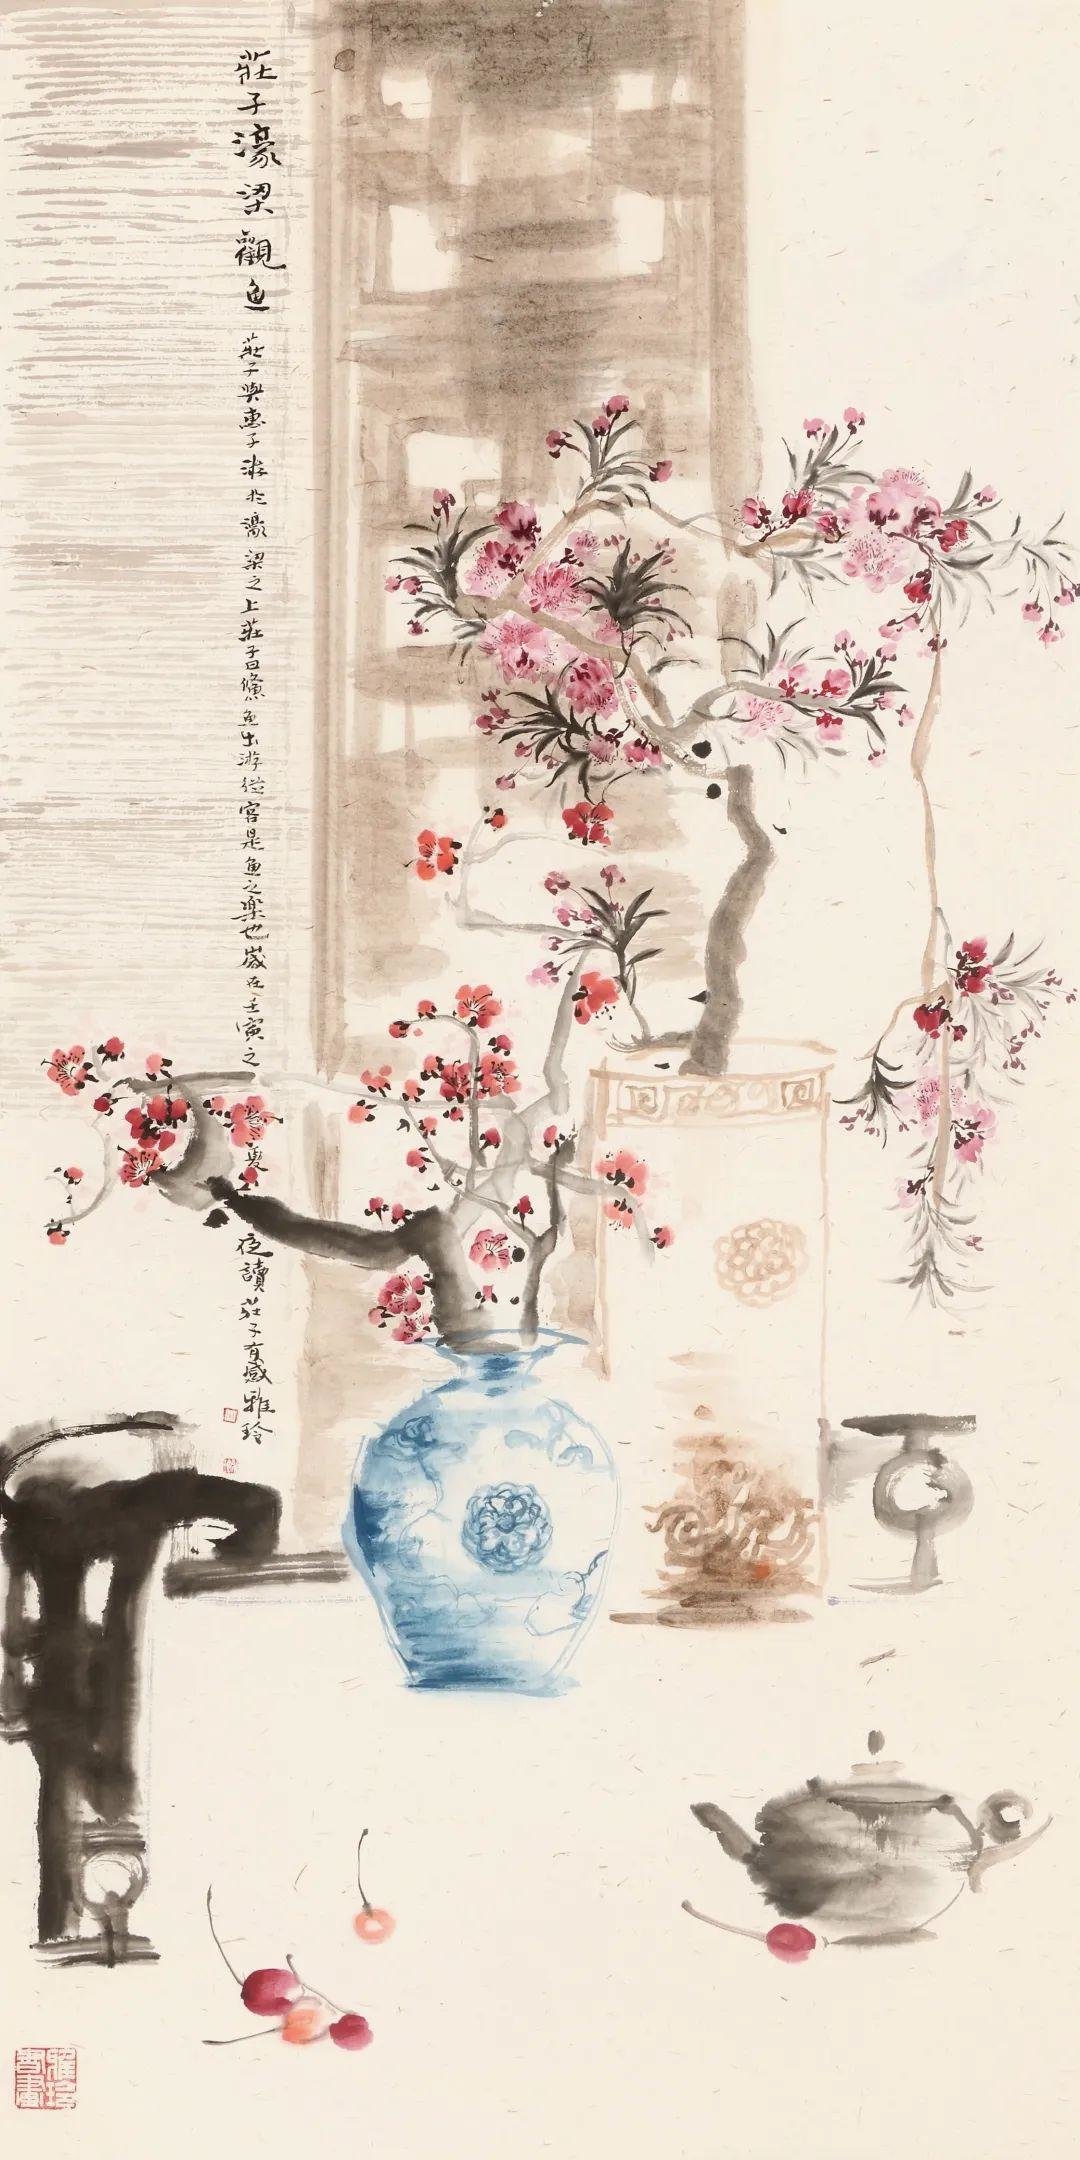 莊子濠梁觀魚
莊子與惠子游於濠梁之上莊子曰鯈魚出游從容是魚之樂也歲在壬寅之
夏夜讀莊子有感雅玲